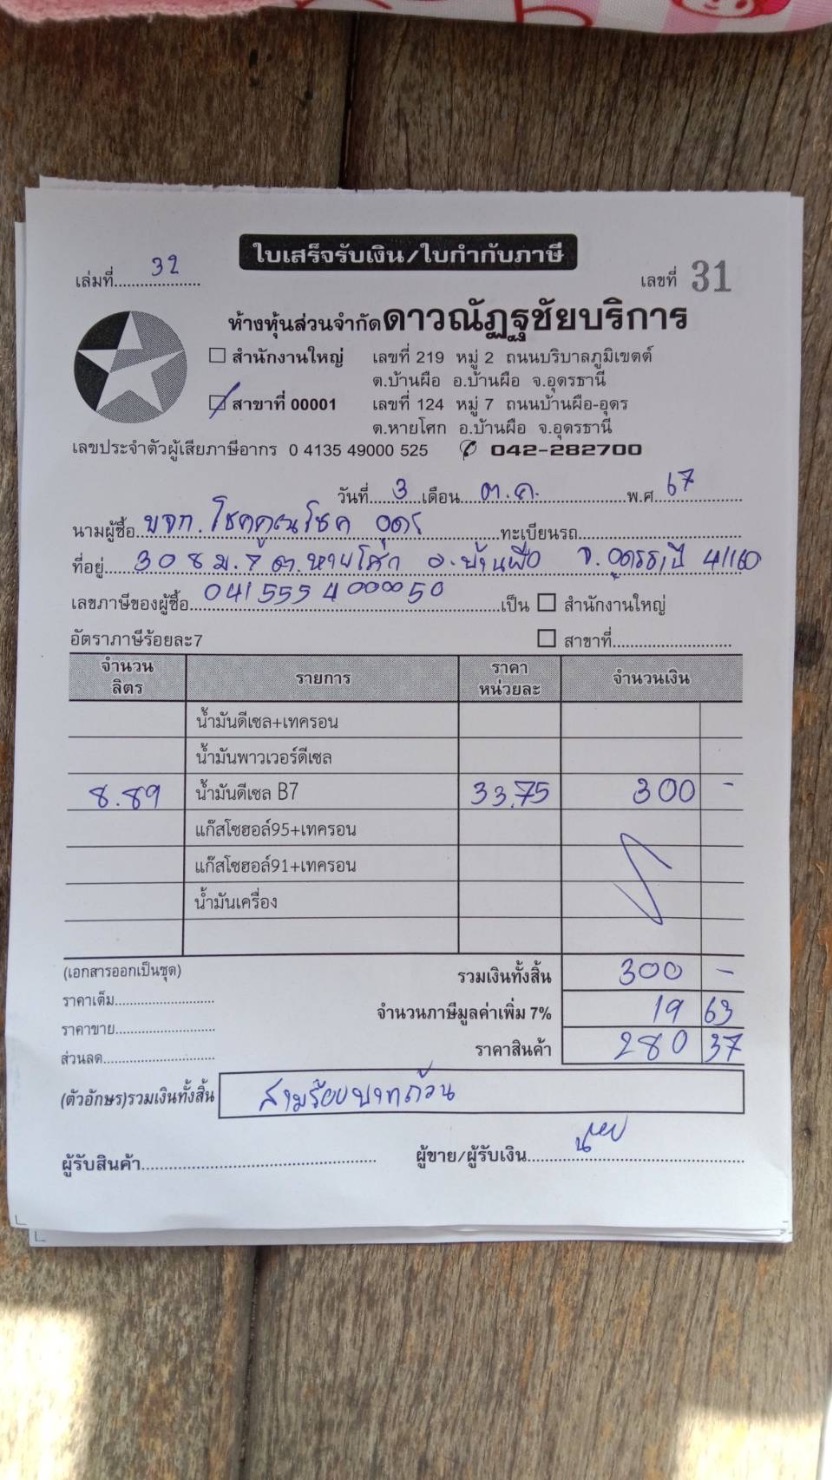 ใบเสร็จรับเงิน/ใบกำกับภาษี
เล่มที่ 32 เลขที่ 31
ห้างหุ้นส่วนจำกัดดาวณัฏฐชัยบริการ
สำนักงานใหญ่ เลขที่ 219 หมู่ 2 ถนนบริบาลภูมิเขตต์
ต.บ้านผือ อ.บ้านผือ จ.อุดรธานี
สาขาที่ 00001 เลขที่ 124 หมู่ 7 ถนนบ้านผือ-อุดร
ต.หายโศก อ.บ้านผือ จ.อุดรธานี
เลขประจำตัวผู้เสียภาษีอากร 0 4135 49000 525 042-282700
วันที่ 3 เดือน ต.ค. พ.ศ. 67
นามผู้ซื้อ บจก. โชคคูณโชค อุดร ทะเบียนรถ
ที่อยู่ 308 ม.7 ต.หายโศก อ.บ้านผือ จ.อุดรธานี 41160
เลขภาษีของผู้ซื้อ 0415554000050 เป็น สำนักงานใหญ่
อัตราภาษีร้อยละ7 สาขาที่
จำนวนลิตร รายการ ราคาหน่วยละ จำนวนเงิน
น้ำมันดีเซล+เทครอน
น้ำมันพาวเวอร์ดีเซล
8.89 น้ำมันดีเซล B7 33.75 300 -
แก๊สโซฮอล์95+เทครอน
แก๊สโซฮอล์91+เทครอน
น้ำมันเครื่อง
(เอกสารออกเป็นชุด) รวมเงินทั้งสิ้น 300 -
ราคาเต็ม
จำนวนภาษีมูลค่าเพิ่ม 7% 19 63
ราคาขาย
ราคาสินค้า 280 37
ส่วนลด
(ตัวอักษร)รวมเงินทั้งสิ้น สามร้อยบาทถ้วน
ผู้รับสินค้า ผู้ขาย/ผู้รับเงิน